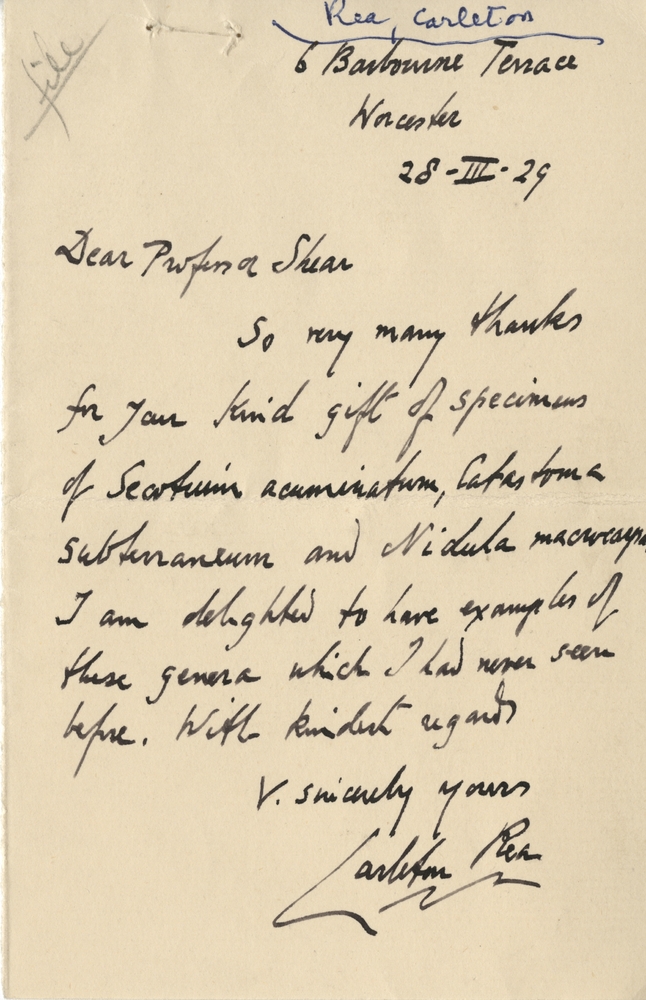 Rea, Carleton
file
6 Barbourne Terrace
Worcester
28-III-29
Dear Professor Shear
So very many thanks
for your kind gift of specimens
of Secotium acuminatum, Catastoma
subterraneum and Nidula macrocarpa.
I am delighted to have examples of
these genera which I had never seen
before. With kindest regards
V. sincerely yours
Carleton Rea